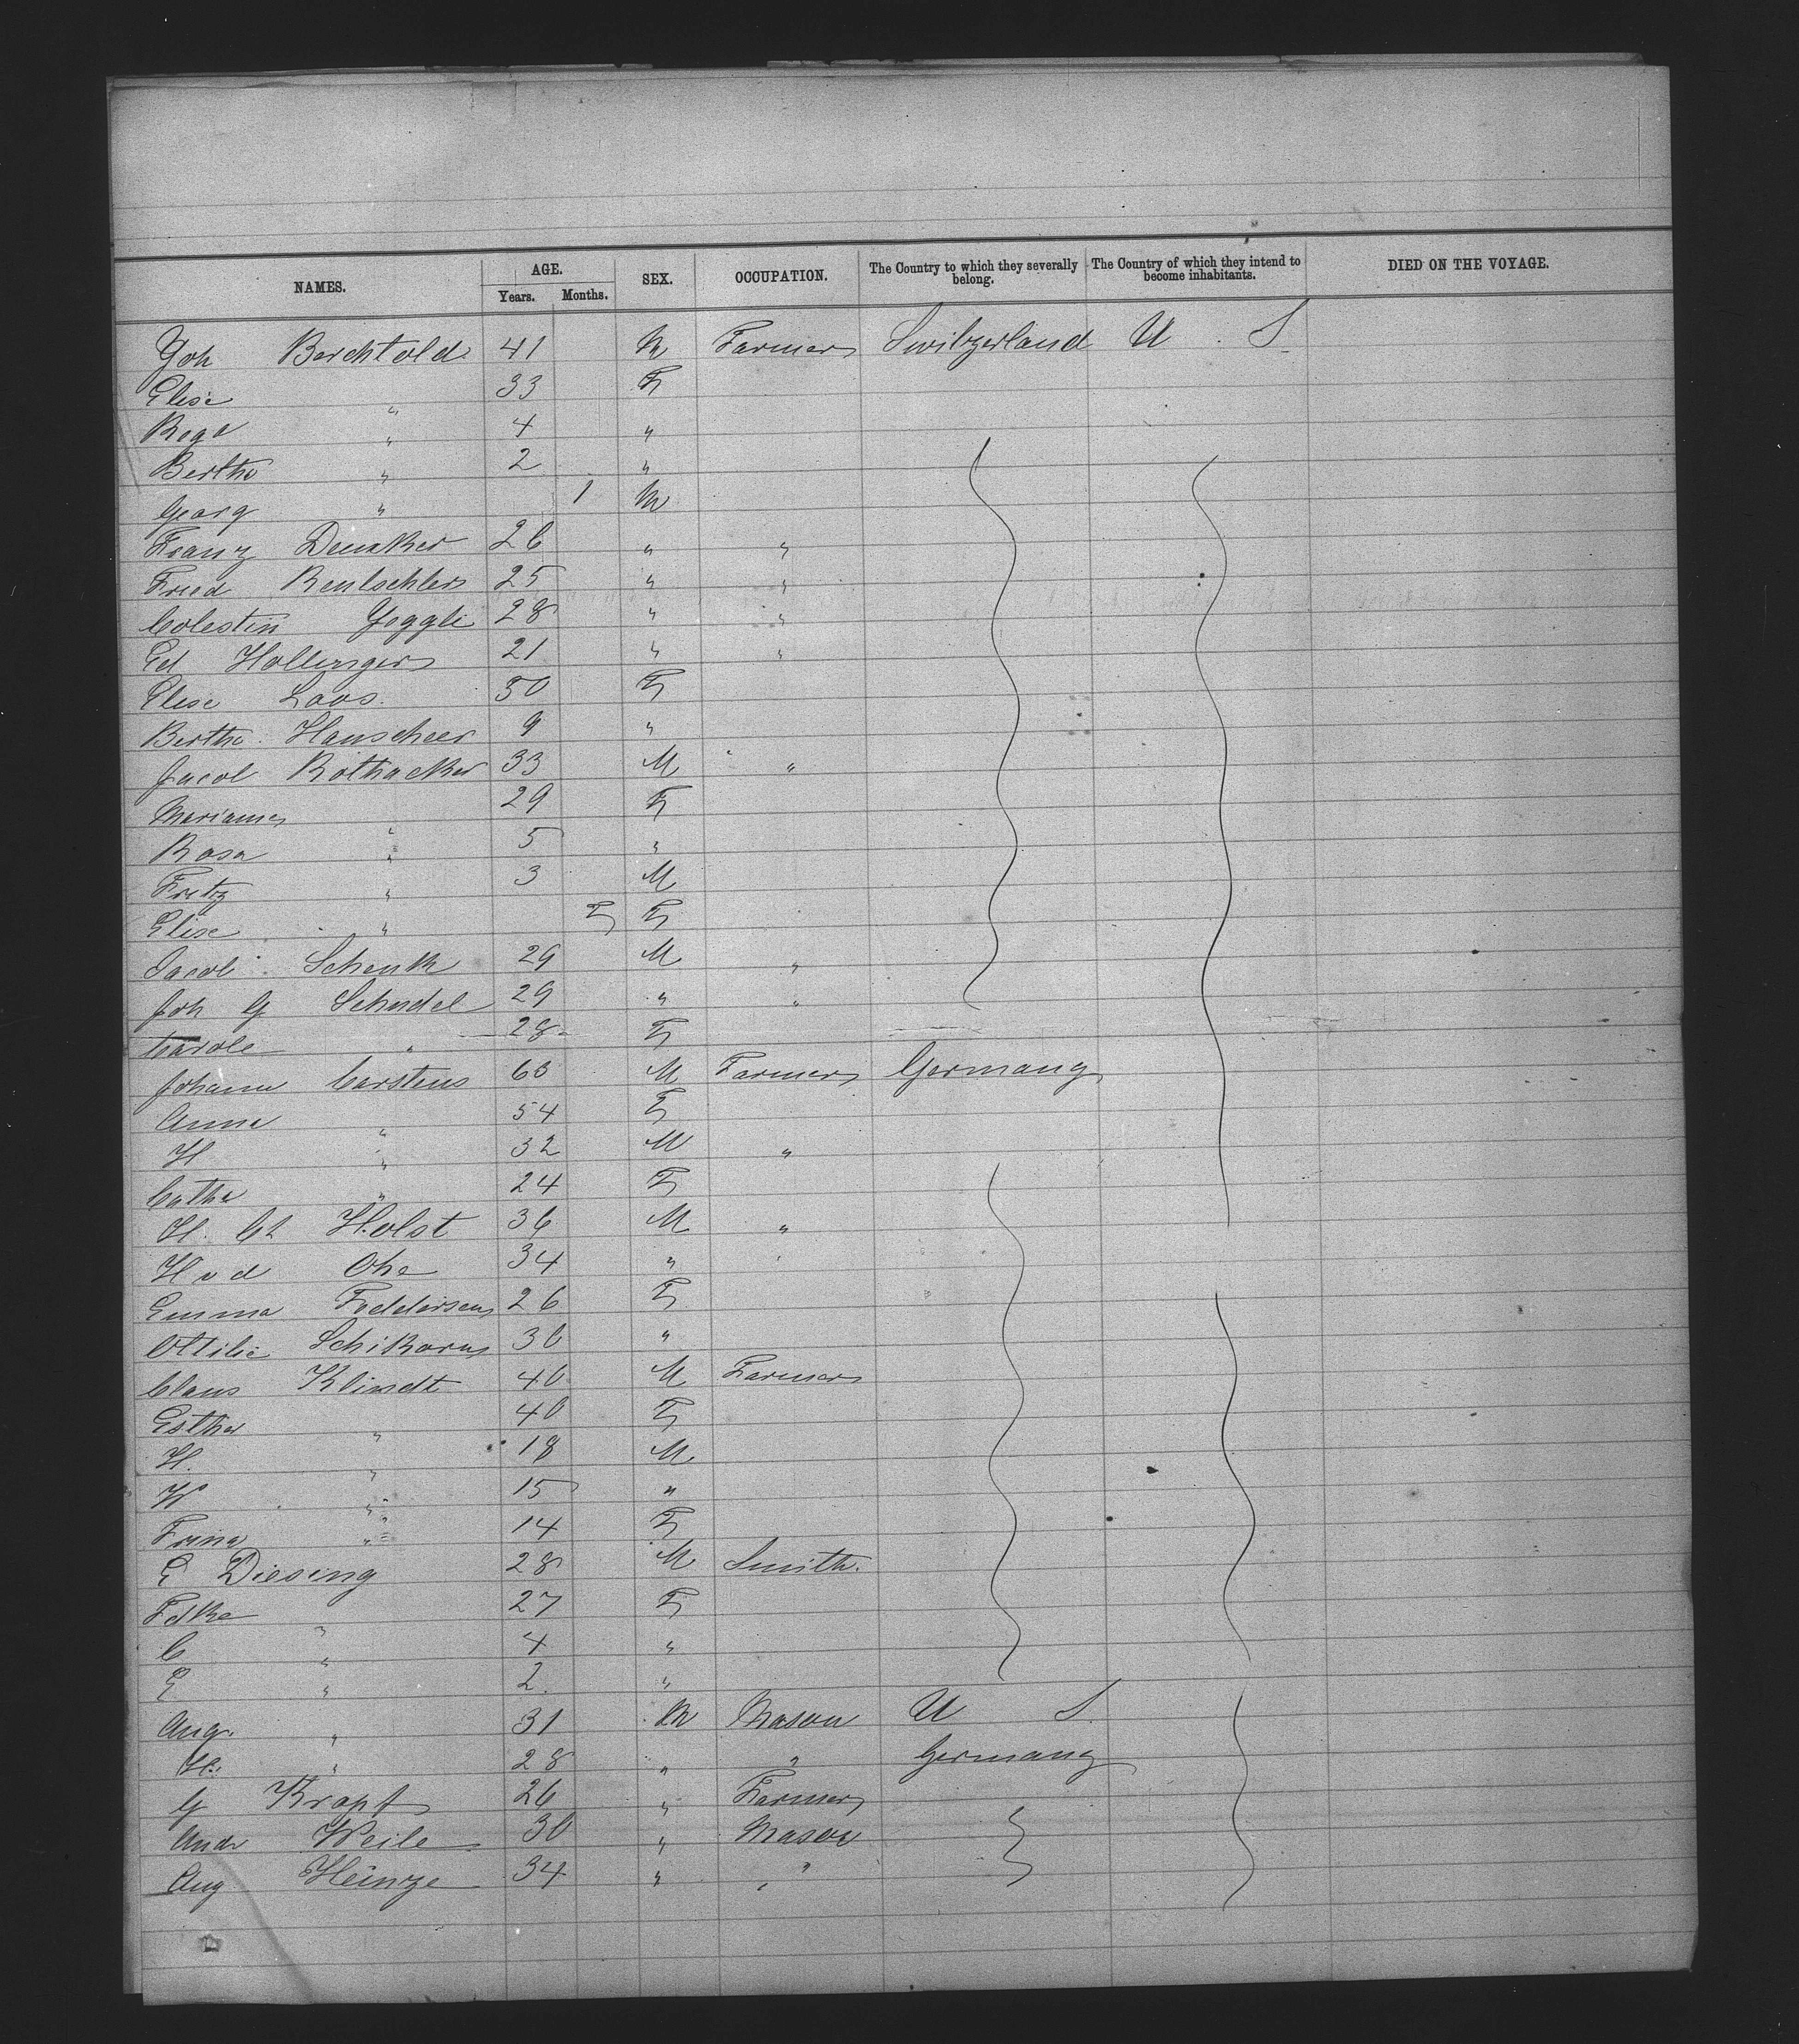 NAMES. AGE. Years. Months. SEX. OCCUPATION. The Country to which they severally belong. The Country of which they intend to become inhabitants. DIED ON THE VOYAGE.
Joh Berchtold 41 M Farmer Switzerland U. S
Elise " 33 F
Rega " 4 "
Bertha " 2 "
Georg " 1 M
Franz Denzker 26 " "
Fried Rentschler 25 " "
Colestin Joggli 28 " "
Ed Hollinger 21 " "
Elise Loos. 50 F
Bertha Hanscheer 9 "
Jacob Rothacker 33 M "
Marianne " 29 F
Rosa " 5 "
Fritz " 3 M
Elise " F
Jacob Schenk 29 M "
Joh G Schudel 29 " "
Carole " 28 F
Johann Carstens 63 M Farmer Germany
Anna " 54 F
H " 32 M "
Catha " 24 F
H. Ch Holst 36 M "
H v d Ohe 34 " "
Emma Feddersen 26 F
Ottilie Schikora 30 "
Claus Klindt 40 M Farmer
Esther " 40 F
H. " 18 M
W " 15 "
Frina " 14 F
E Diesing 28 M Smith.
Folke " 27 F
C " 4 "
E " 2. "
Aug. " 31 M Mason U S
H. " 28 " " Germany
G Kropf 26 " Farmer
Andr Weile 30 " Mason
Aug Heinze 34 " "